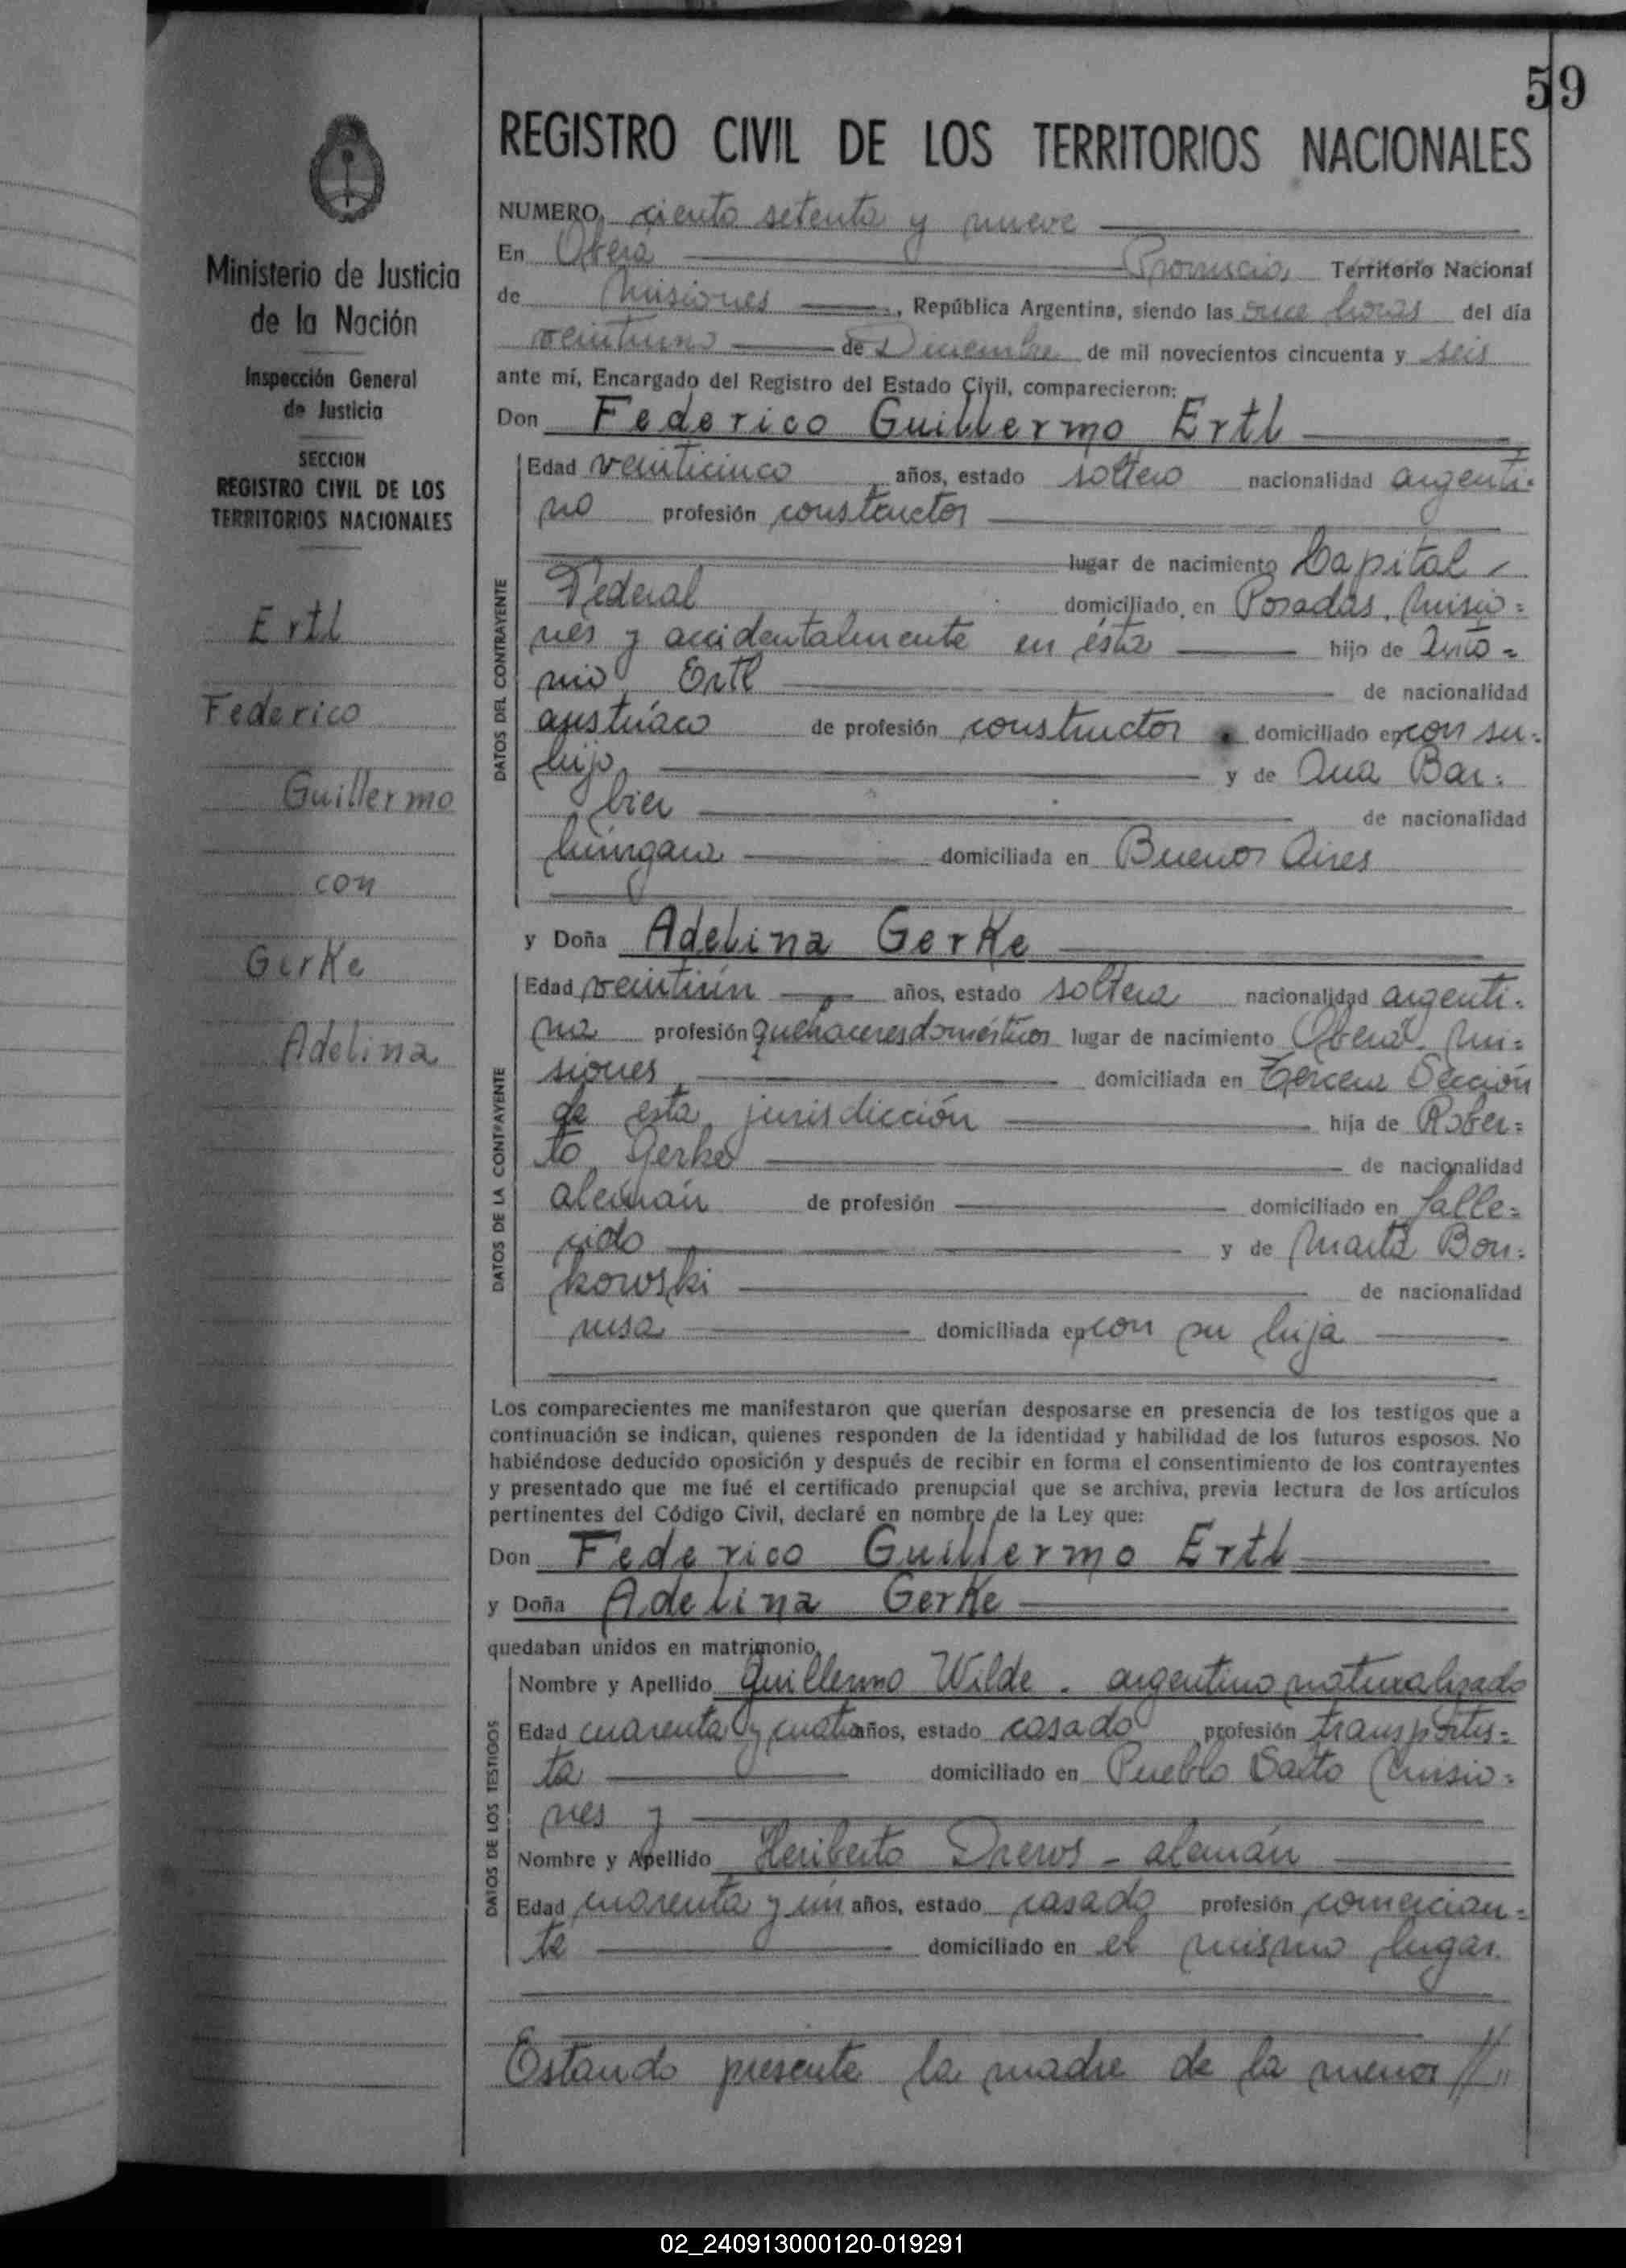 59
REGISTRO CIVIL DE LOS TERRITORIOS NACIONALES
Ministerio de Justicia
de la Nación
Inspección General
de Justicia
SECCION
REGISTRO CIVIL DE LOS
TERRITORIOS NACIONALES
Ertl
Federico
Guillermo
con
Gerke
Adelina
NUMERO ciento setenta y nueve
En Oberá Provincia Territorio Nacional
de Misiones, República Argentina, siendo las once horas del día
veintiuno de Diciembre de mil novecientos cincuenta y seis
ante mí, Encargado del Registro del Estado Civil, comparecieron:
Don Federico Guillermo Ertl
DATOS DEL CONTRAYENTE
Edad veinticinco años, estado soltero nacionalidad argenti=
no profesión constructor
lugar de nacimiento Capital
Federal domiciliado en Posadas, Misio=
nes y accidentalmente en ésta hijo de Anto=
nio Ertl de nacionalidad
austríaco de profesión constructor domiciliado en con su
hijo y de Ana Bar=
bier de nacionalidad
húngara domiciliada en Buenos Aires
y Doña Adelina Gerke
DATOS DE LA CONTRAYENTE
Edad veintiún años, estado soltera nacionalidad argenti=
na profesión quehaceres domésticos lugar de nacimiento Oberá Mi=
siones domiciliada en Tercera Sección
de esta jurisdicción hija de Rober=
to Gerke de nacionalidad
alemán de profesión domiciliado en falle=
cido y de Marta Bon=
kowski de nacionalidad
rusa domiciliada en con su hija
Los comparecientes me manifestaron que querían desposarse en presencia de los testigos que a
continuación se indican, quienes responden de la identidad y habilidad de los futuros esposos. No
habiéndose deducido oposición y después de recibir en forma el consentimiento de los contrayentes
y presentado que me fué el certificado prenupcial que se archiva, previa lectura de los artículos
pertinentes del Código Civil, declaré en nombre de la Ley que:
Don Federico Guillermo Ertl
y Doña Adelina Gerke
quedaban unidos en matrimonio
DATOS DE LOS TESTIGOS
Nombre y Apellido Guillermo Wilde - argentino naturalizado
Edad cuarenta y cuatro años, estado casado profesión transportis=
ta domiciliado en Pueblo Salto Misio=
nes y
Nombre y Apellido Heriberto Drews - alemán
Edad cuarenta y un años, estado casado profesión comercian=
te domiciliado en el mismo lugar.
Estando presente la madre de la menor //
02_240913000120-019291